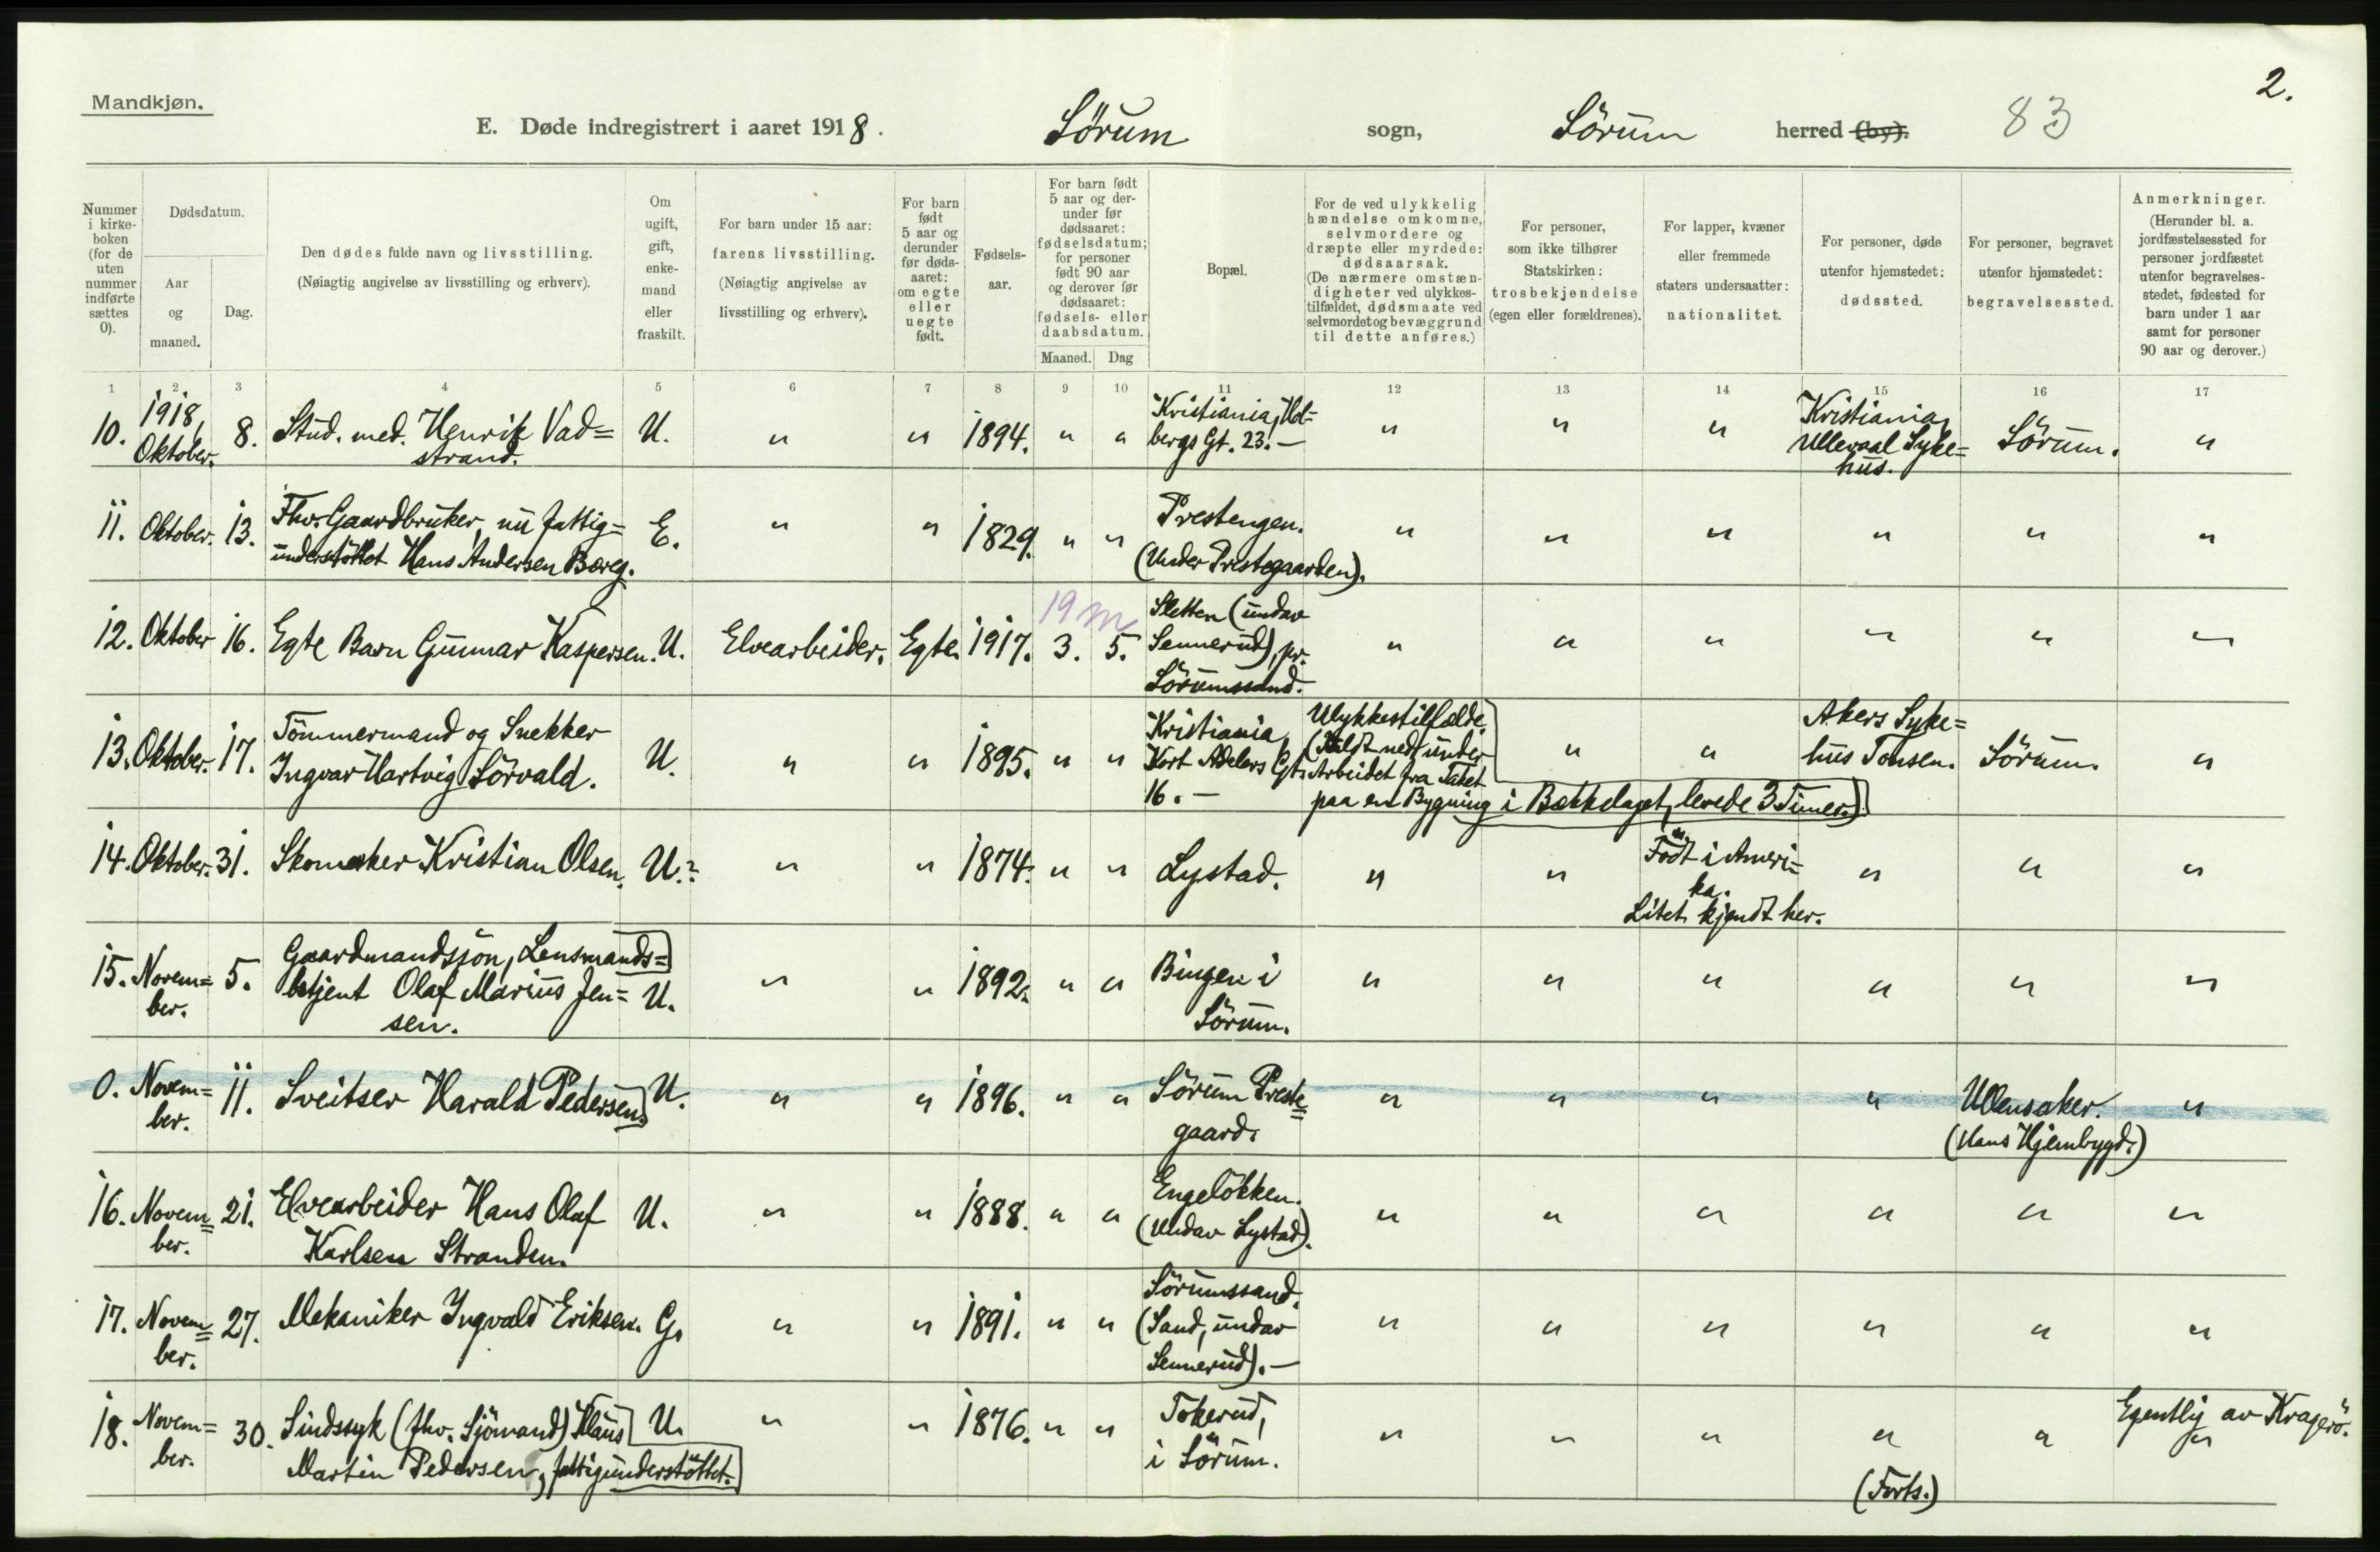 2.
Mandkjøn.
E. Døde indregistrert i aaret 1918. Sörum sogn, Sörum herred (by). 83
Nummer i kirke-boken (for de uten nummer indførte sættes 0).
Dødsdatum.
Aar og maaned.
Dag.
Den dødes fulde navn og livsstilling.
(Nøiagtig angivelse av livsstilling og erhverv).
Om ugift, gift, enke-mand eller fraskilt.
For barn under 15 aar: farens livsstilling.
(Nøiagtig angivelse av livsstilling og erhverv).
For barn født 5 aar og derunder før døds-aaret: om egte eller uegte født.
Fødsels-aar.
For barn født 5 aar og der-under før dødsaaret: fødselsdatum; for personer født 90 aar og derover før dødsaaret: fødsels- eller daabsdatum.
Maaned. Dag
Bopæl.
For de ved ulykkelig hændelse omkomne, selvmordere og dræpte eller myrdede: dødsaarsak.
(De nærmere omstæn-digheter ved ulykkes-tilfældet, dødsmaate ved selvmordet og bevæggrund til dette anføres.)
For personer, som ikke tilhører Statskirken: trosbekjendelse (egen eller forældrenes).
For lapper, kvæner eller fremmede staters undersaatter: nationalitet.
For personer, døde utenfor hjemstedet: dødssted.
For personer, begravet utenfor hjemstedet: begravelsessted.
Anmerkninger.
(Herunder bl. a. jordfæstelsessted for personer jordfæstet utenfor begravelses-stedet, fødested for barn under 1 aar samt for personer 90 aar og derover.)
1 2 3 4 5 6 7 8 9 10 11 12 13 14 15 16 17
10. 1918, Oktober. 8. Stud. med. Henrik Vad=strand. U. " " 1894. " " Kristiania, Hol=bergs Gt. 23.— " " " Kristiania, Ullevaal Syke=hus. Sörum. "
11. Oktober. 13. Fhv. Gaardbruker, nu fattig=understöttet Hans Andersen Bæreg. E. " " 1829. " " Prestengen. (Under Prestegaarden). " " " " " "
12. Oktober 16. Egte Barn Gunnar Kaspersen. U. Elvearbeider. Egte. 1917. 19 m 3. 5. Sletten (undav Sennerud), pr. Sörumssand. " " " " " "
13. Oktober. 17. Tömmermand og Snekker Ingvar Hartvig Sörvald. U. " " 1895. " " Kristiania, Kort Adelers Gt. 16.— Ulykkestilfælde, (Faldt ned under Arbeidet fra Taket paa en Bygning i Bækkelaget, levede 3 Timer.) " " Akers Syke=hus Tonsen. Sörum. "
14. Oktober. 31. Skomaker Kristian Olsen. U.? " " 1874. " " Lystad. " " Födt i Ameri=ka. Litet kjendt her. " " "
15. Novem=ber. 5. Gaardmandssön, Lensmands=betjent Olaf Marius Jen=sen. U. " " 1892. " " Bingen i Sörum. " " " " " "
0. Novem=ber. 11. Sveitser Harald Pedersen. U. " " 1896. " " Sörum Preste=gaard. " " " " Ullensaker. (Hans Hjembygd.) "
16. Novem=ber. 21. Elvearbeider Hans Olaf Karlsen Stranden. U. " " 1888. " " Engelökken. (Undav Lystad). " " " " " "
17. Novem=ber. 27. Mekaniker Ingvald Eriksen. G. " " 1891. " " Sörumssand. (Sand, undav Sennerud).— " " " " " "
18. Novem=ber. 30. Sindssyk (fhv. Sjömand) Klaus Martin Pedersen, fattigunderstöttet. U. " " 1876. " " Tokerud, i Sörum. " " " " " Egentlig av Kragerö. "
(Forts.)